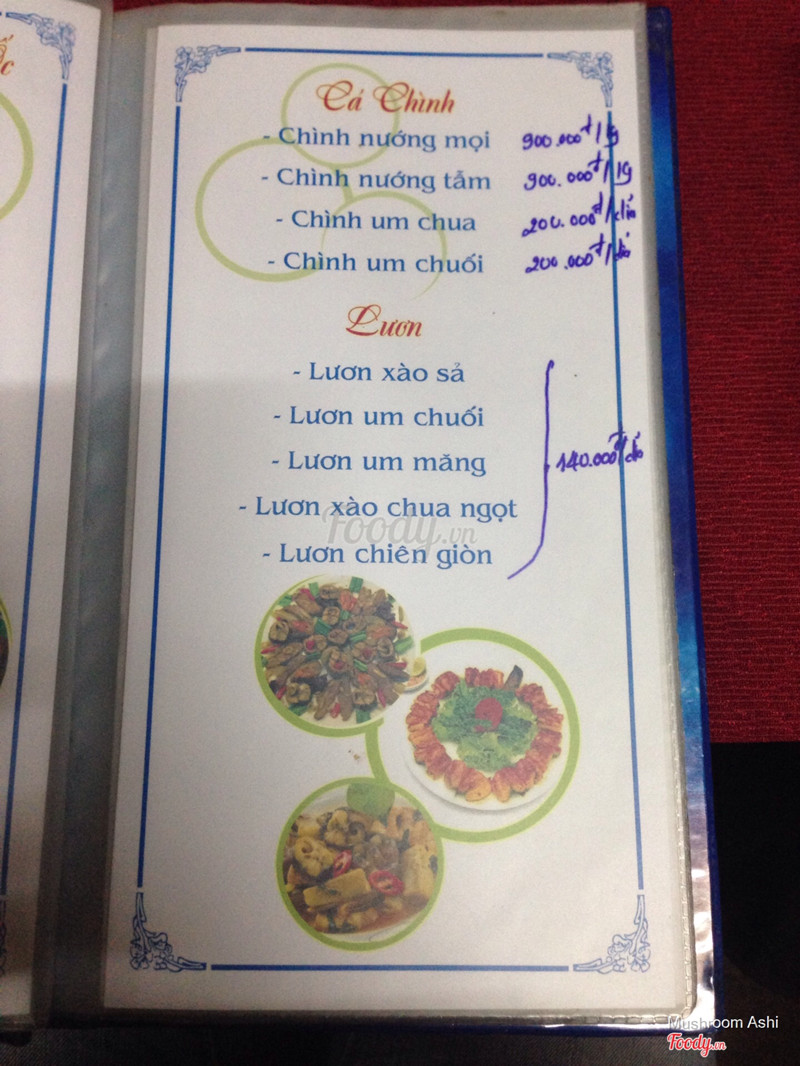 ốc
Cá Chình
- Chình nướng mọi 900.000đ/kg
- Chình nướng tẫm 900.000đ/kg
- Chình um chua 200.000đ/dĩa
- Chình um chuối 200.000đ/dĩa
Lươn
- Lươn xào sả
- Lươn um chuối
- Lươn um măng 140.000đ/dĩa
- Lươn xào chua ngọt
- Lươn chiên giòn
Foody.vn
Mushroom Ashi
Foody.vn